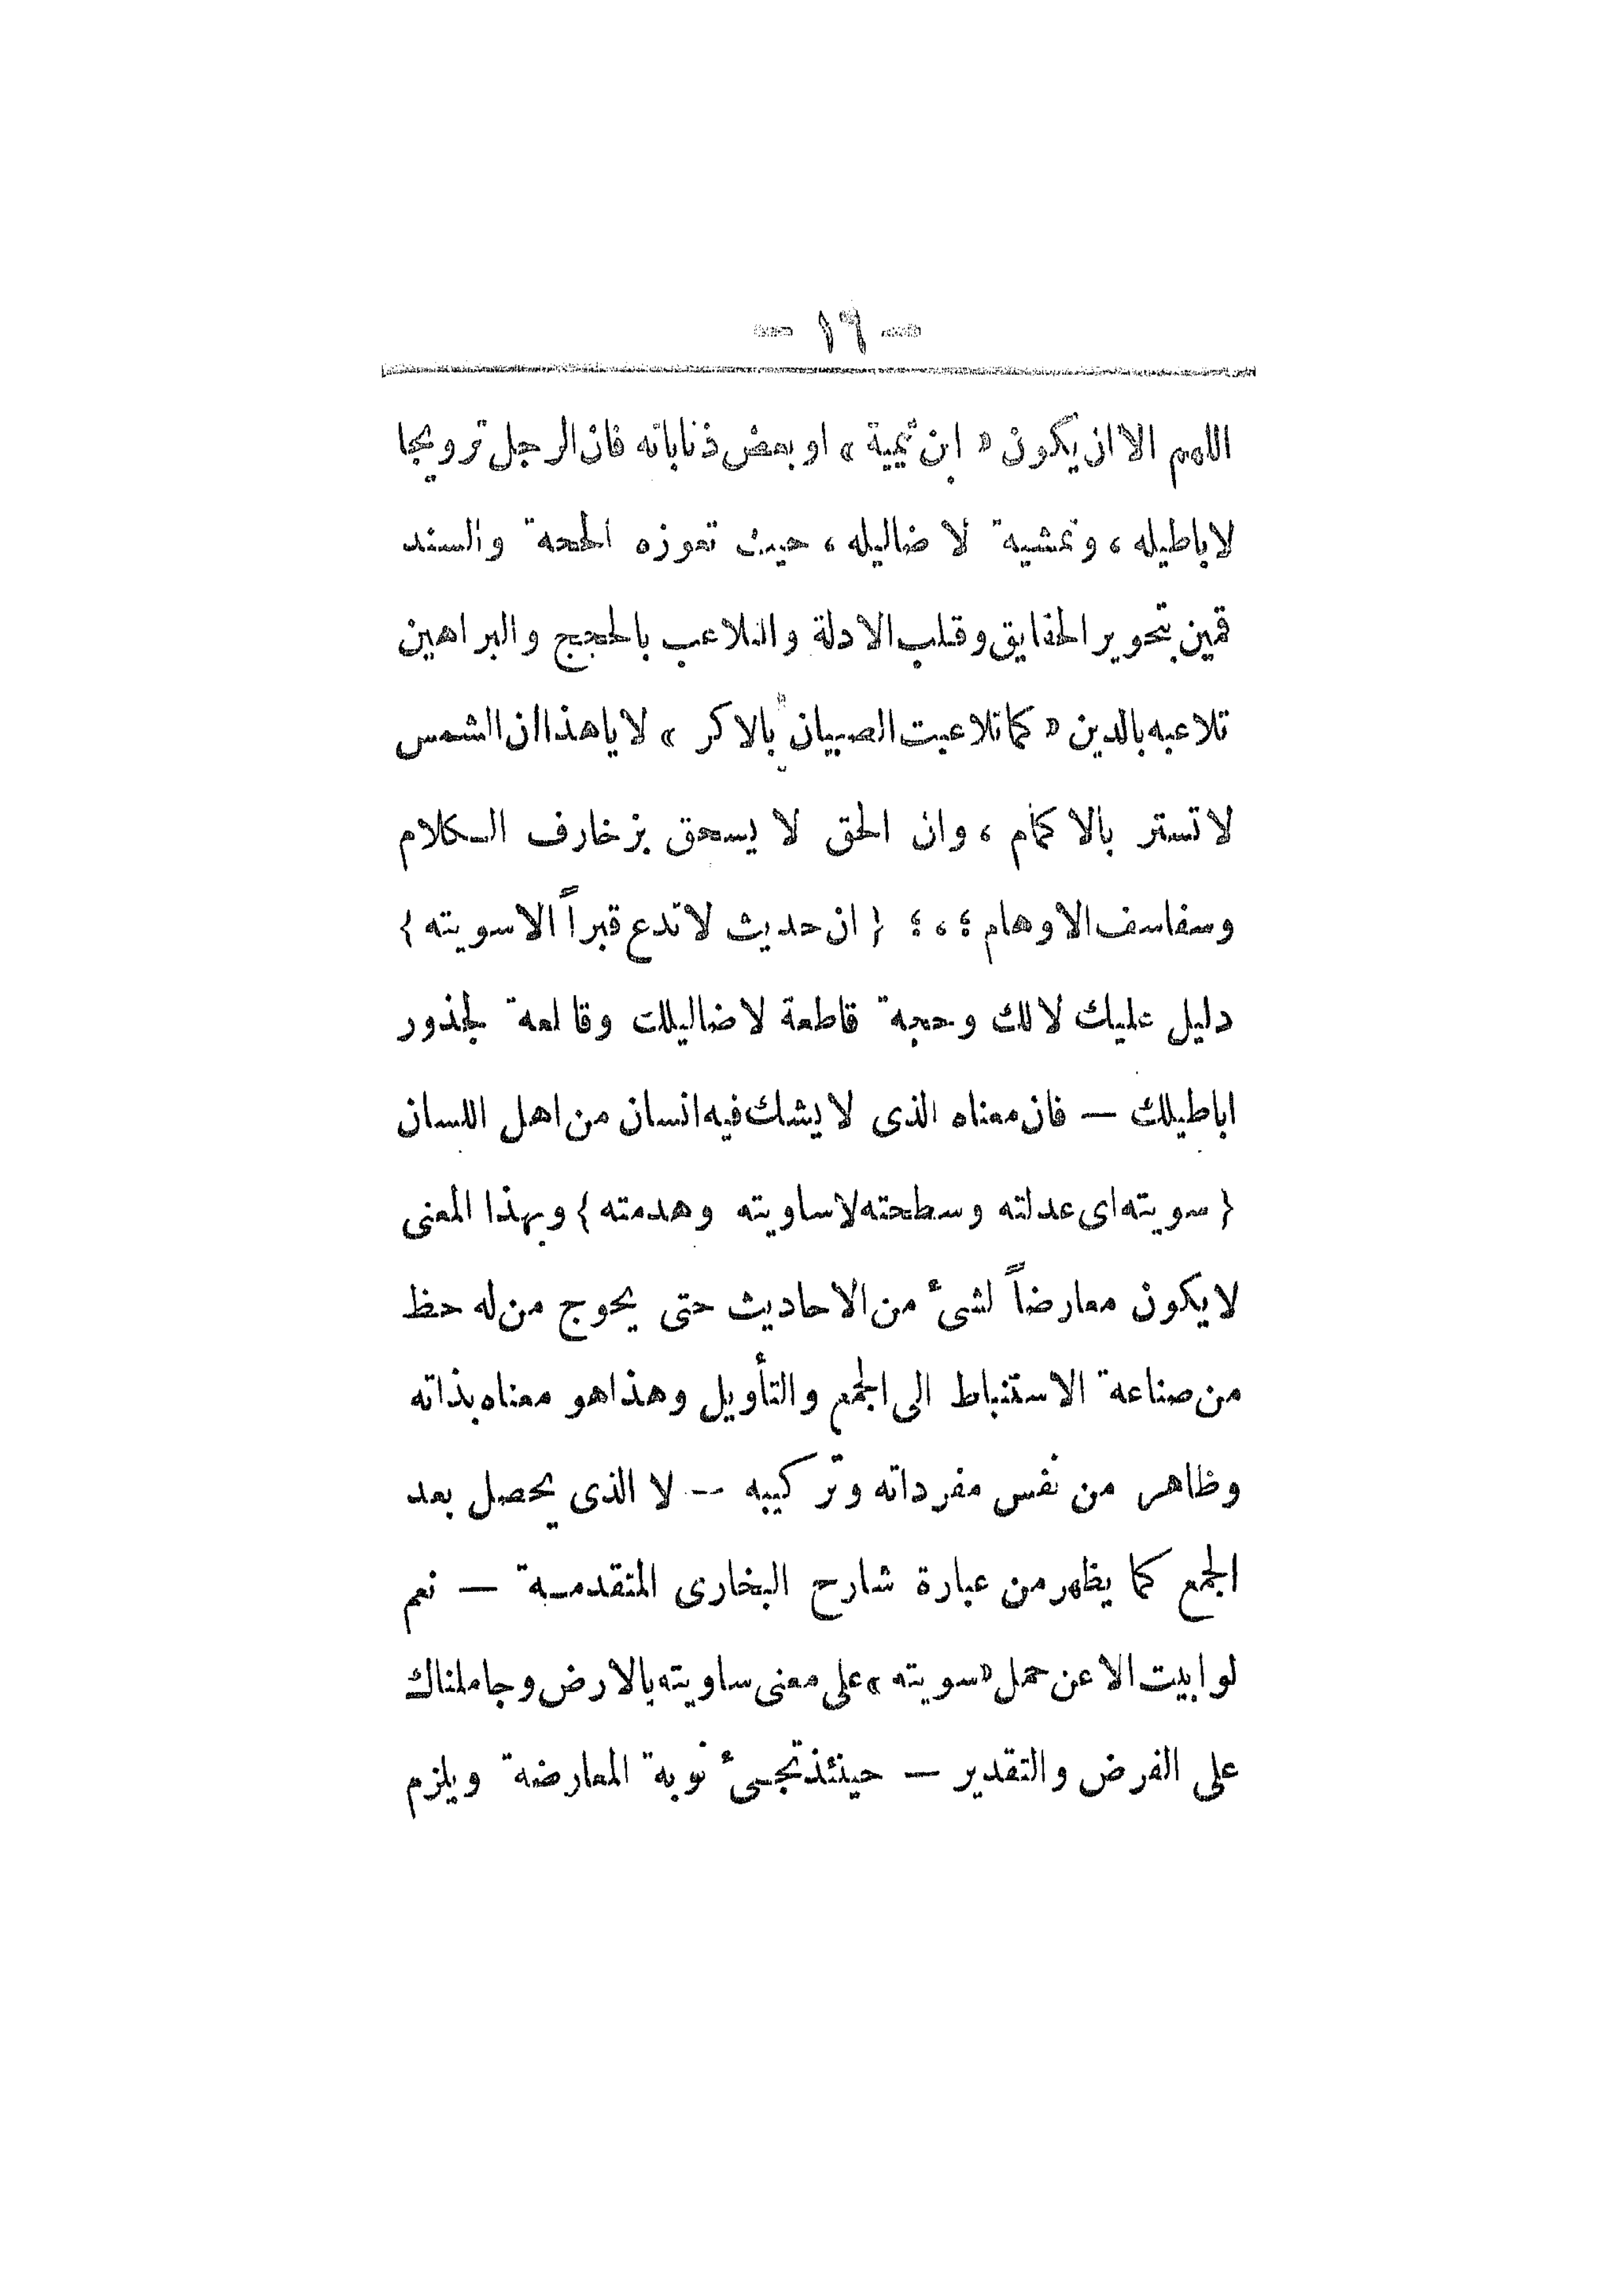 - ١٦ -
اللهم الا ان يكون « ابن تيمية » او بعض ذناباته فان الرجل ترويجا
لاباطيله ، وتمشية لا ضاليله ، حيث تعوزه الحجة والسند
قمين بتحوير الحقايق وقلب الادلة والتلاعب بالحجج والبراهين
تلاعبه بالدين « كما تلاعبت الصبيان بالاكر » لا يا هذا ان الشمس
لا تستر بالا كمام ، وان الحق لا يسحق بزخارف الكلام
وسفاسف الاوهام ؛ ، ؛ { ان حديث لا تدع قبراً الا سويته }
دليل عليك لا لك وحجة قاطعة لا ضاليلك وقالعة لجذور
اباطيلك — فان معناه الذى لا يشك فيه انسان من اهل اللسان
{ سويته اى عدلته وسطحته لا ساويته وهدمته } وبهذا المعنى
لا يكون معارضاً لشئ من الاحاديث حتى يحوج من له حظ
من صناعة الاستنباط الى الجمع والتأويل وهذا هو معناه بذاته
وظاهر من نفس مفرداته وتركيبه -- لا الذى يحصل بعد
الجمع كما يظهر من عبارة شارح البخارى المتقدمة — نعم
لو ابيت الا عن حمل « سويته » على معنى ساويته بالارض وجاملناك
على الفرض والتقدير — حينئذ تجئ نوبة المعارضة ويلزم